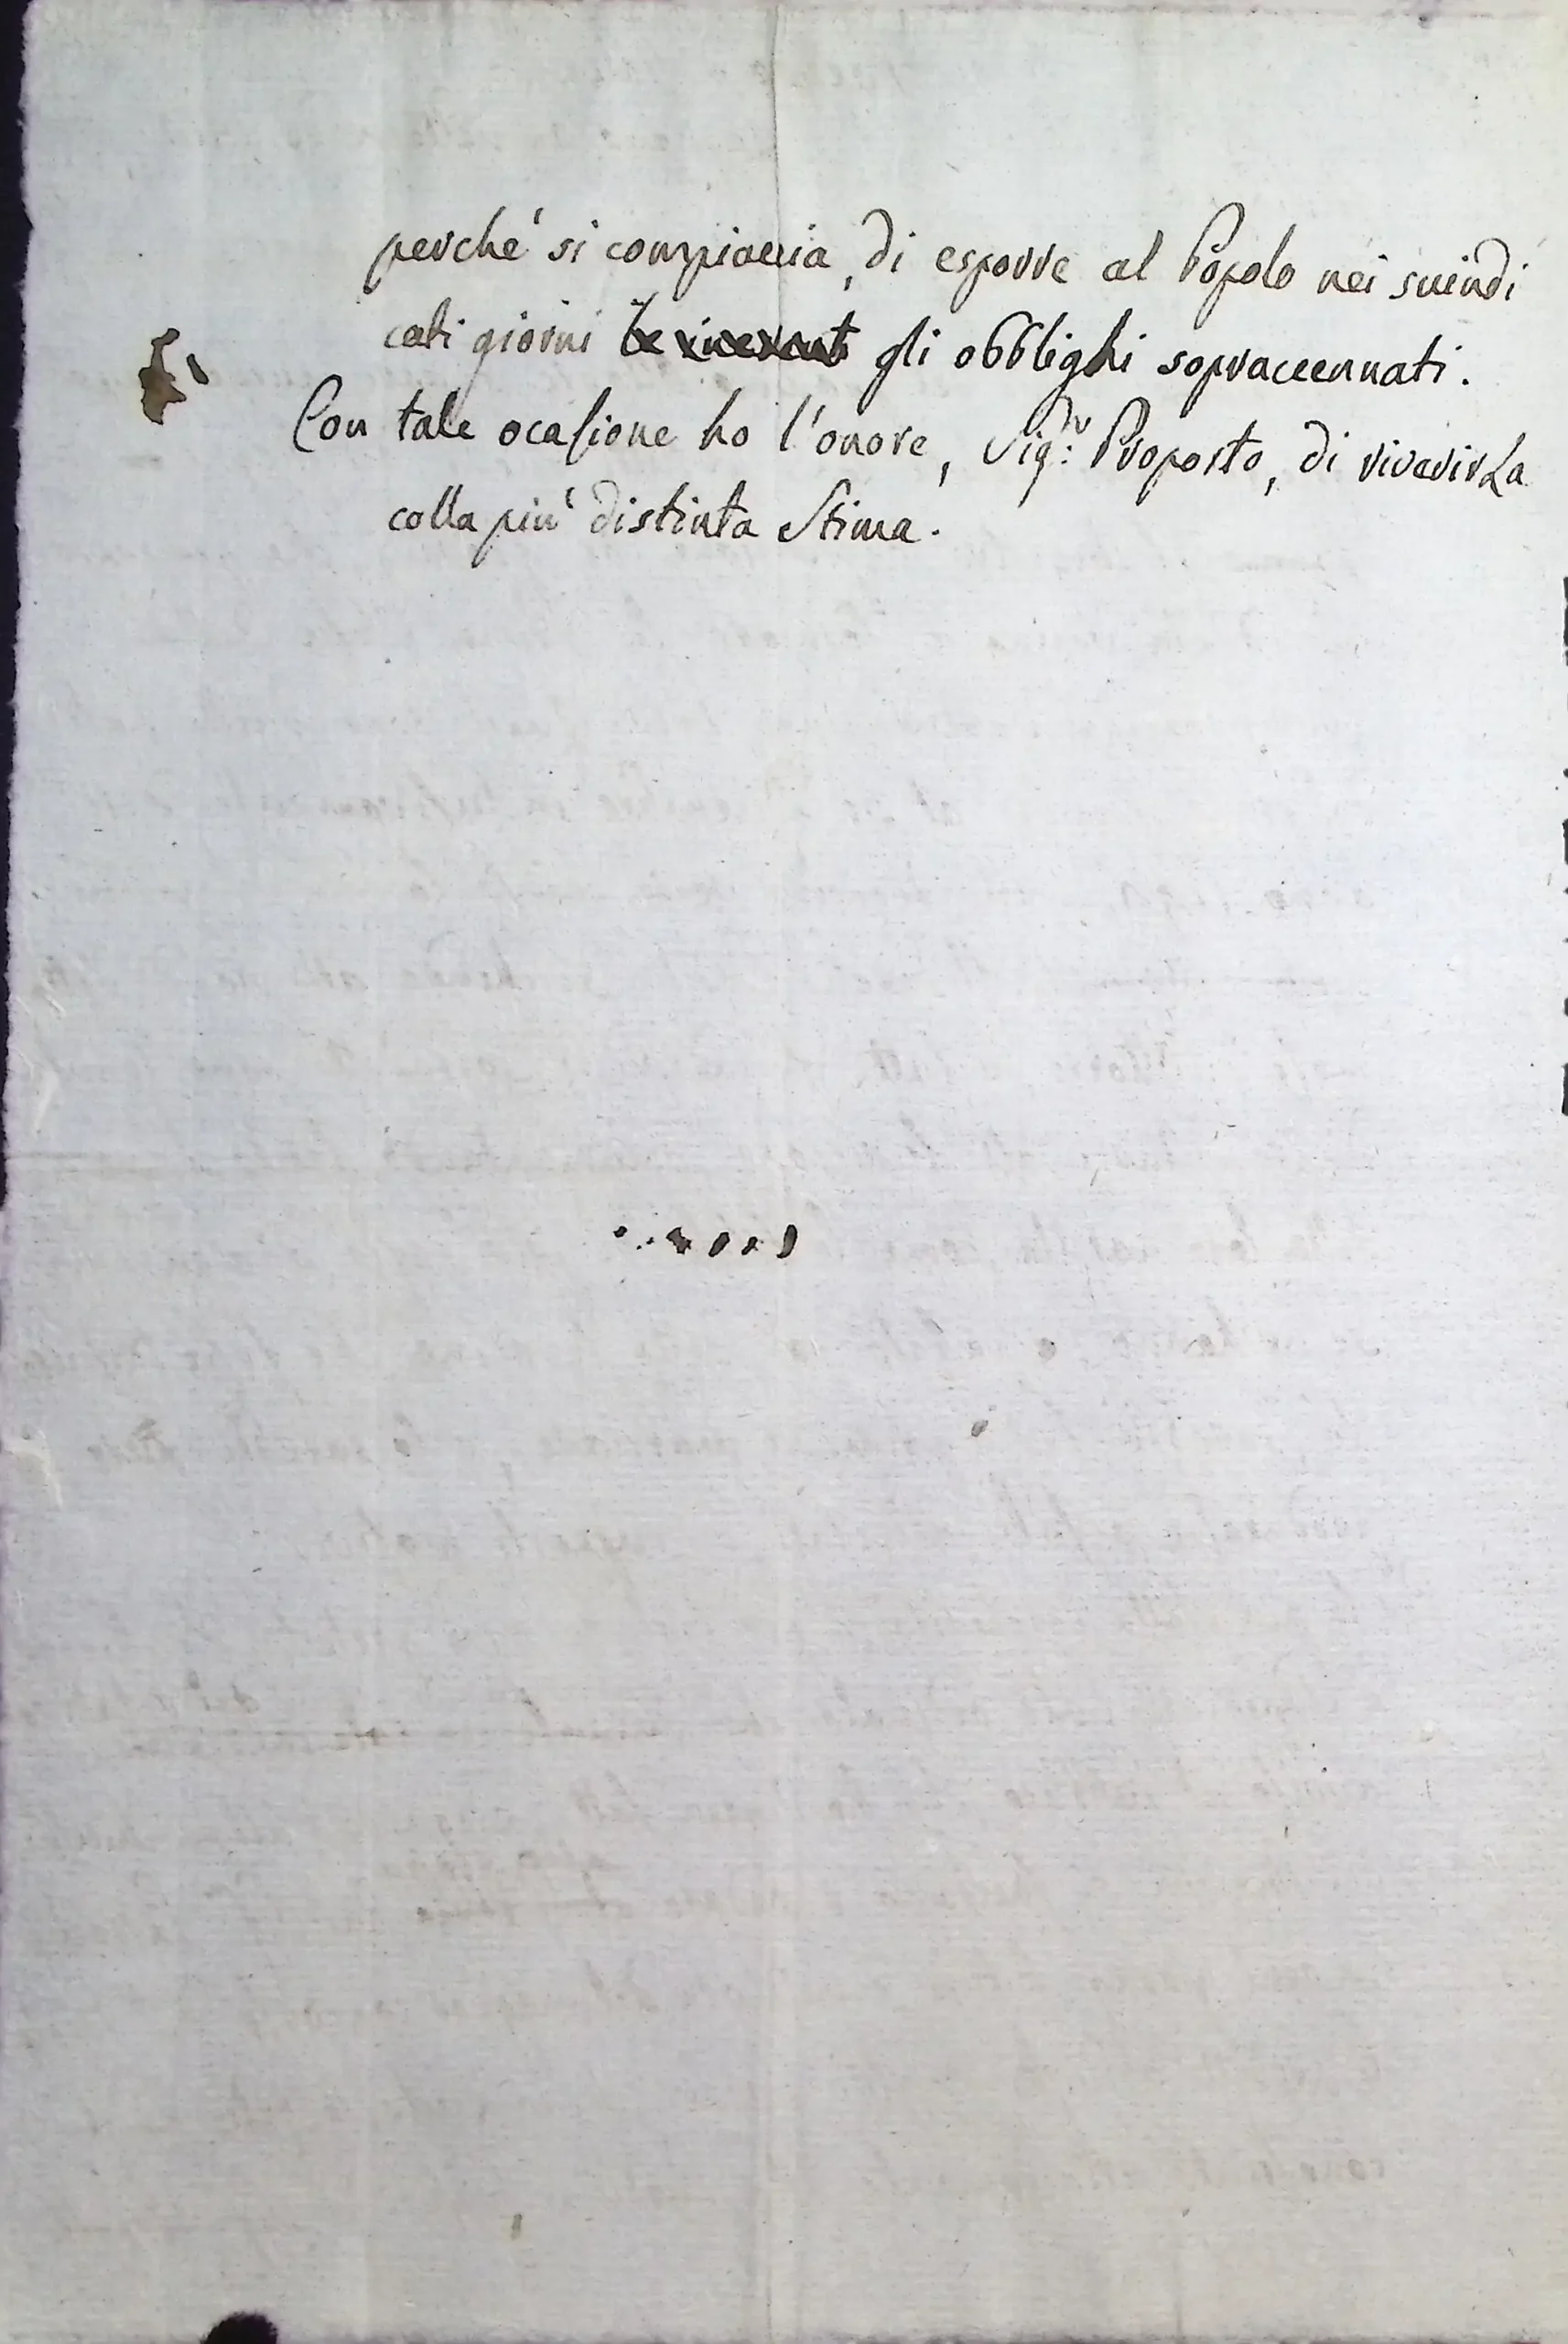 perchè si compiaccia, di esporre al Popolo nei suindi
cati giorni gli obblighi sopraccennati.
Con tale ocasione ho l'onore, Sig.r Proposto, di riverirLa
colla più distinta Stima.